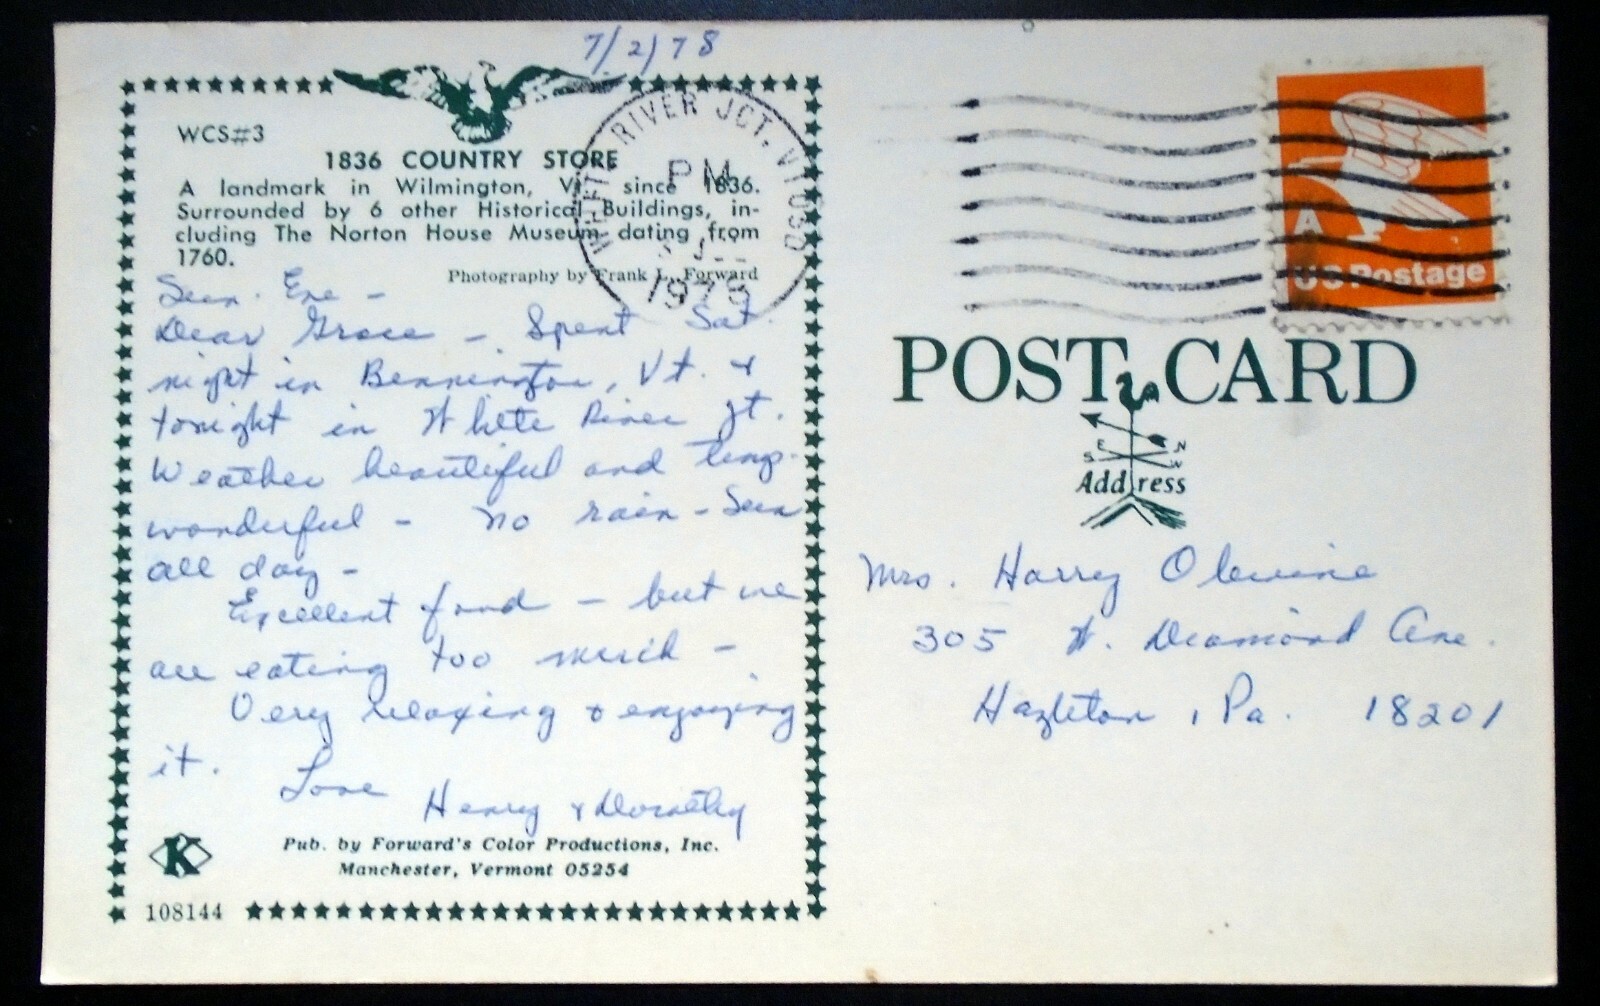 7/2/78
WCS#3
1836 COUNTRY STORE
A landmark in Wilmington, Vt. since 1836.
Surrounded by 6 other Historical Buildings, in-
cluding The Norton House Museum dating from
1760.
Photography by Frank L. Forward
Sun. Eve -
Dear Grace - Spent Sat.
night in Bennington, Vt. &
tonight in White River Jt.
Weather beautiful and temp.
wonderful - no rain - Sun
all day -
Excellent food - but we
are eating too much -
Very relaxing & enjoying
it. Love
Henry & Dorothy
Pub. by Forward's Color Productions, Inc.
Manchester, Vermont 05254
K
108144
RIVER JCT. VT
PM
1978
A
US Postage
POST CARD
E N
S W
Address
Mrs. Harry Olewine
305 W. Diamond Ave.
Hazleton, Pa. 18201